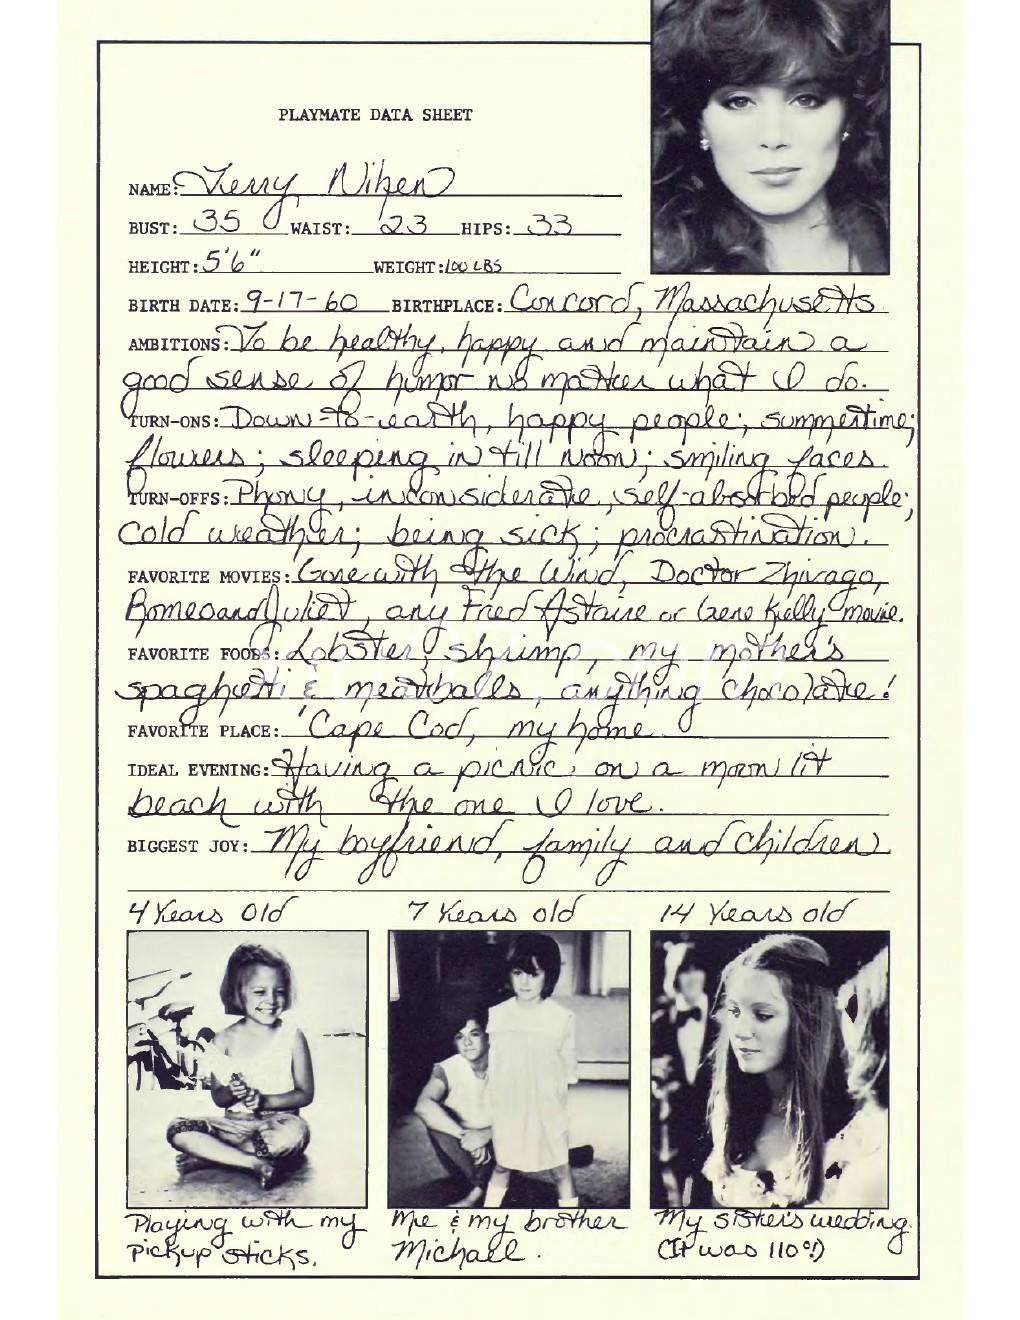 PLAYMATE DATA SHEET
NAME: Terry Nihen
BUST: 35 WAIST: 23 HIPS: 33
HEIGHT: 5'6" WEIGHT: 100 LBS
BIRTH DATE: 9-17-60 BIRTHPLACE: Concord, Massachusetts
AMBITIONS: To be healthy, happy and maintain a
good sense of humor no matter what I do.
TURN-ONS: Down-to-earth, happy people; summertime;
flowers; sleeping in till noon; smiling faces.
TURN-OFFS: Phony, inconsiderate, self-absorbed people;
cold weather; being sick; procrastination.
FAVORITE MOVIES: Gone with the Wind, Doctor Zhivago,
Romeo and Juliet, any Fred Astaire or Gene Kelly movie.
FAVORITE FOODS: Lobster, shrimp, my mother's
spaghetti & meatballs, anything chocolate!
FAVORITE PLACE: Cape Cod, my home
IDEAL EVENING: Having a picnic on a moon lit
beach with the one I love.
BIGGEST JOY: My boyfriend, family and children
4 Years Old 7 Years old 14 Years old
Playing with my Me & my brother My sister's wedding.
Pickup sticks. Michael. (It was 110°!)